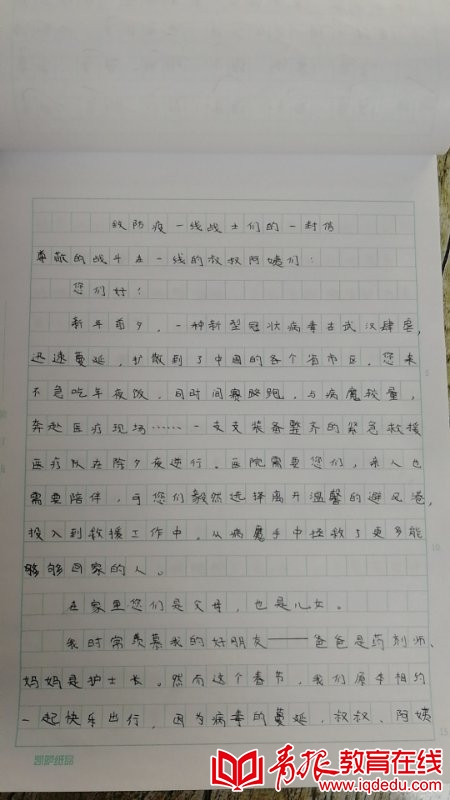 致防疫一线战士们的一封信
尊敬的战斗在一线的叔叔阿姨们：
您们好！
新年前夕，一种新型冠状病毒在武汉肆虐，
迅速蔓延，扩散到了中国的各个省市区。您来
不急吃年夜饭，同时间赛跑，与病魔较量，
奔赴医疗现场……一支支装备整齐的紧急救援
医疗队在除夕夜进行。医院需要您们，亲人也
需要陪伴，可您们毅然选择离开温馨的避风港，
投入到救援工作中，从病魔手中拯救了更多能
够够回家的人。
在家里您们是父母，也是儿女。
我时常羡慕我的好朋友——爸爸是药剂师、
妈妈是护士长。然而这个春节，我们原本相约
一起快乐出行，因为病毒的蔓延，叔叔、阿姨
5
10
15
凯萨纸品
青报教育在线
www.iqdedu.com